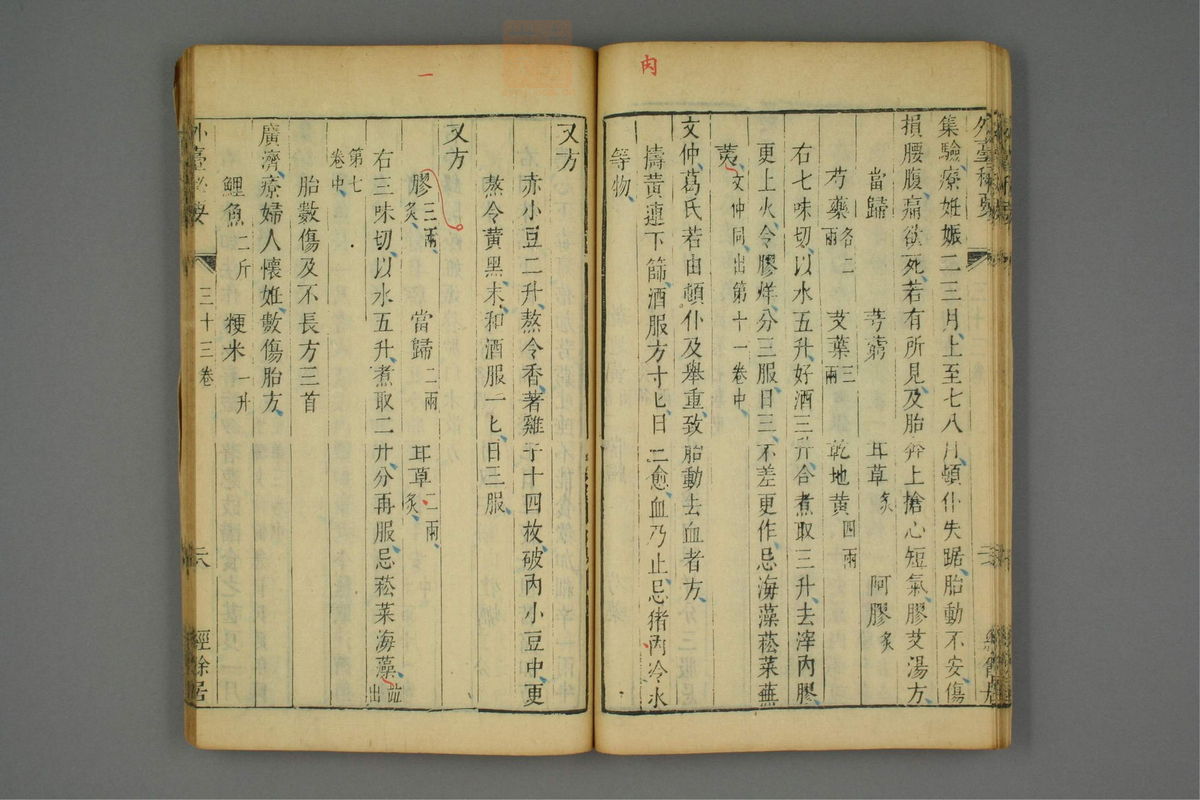 肉
外臺秘要
集驗療妊娠二三月上至七八月頓仆失踞胎動不安傷
損腰腹痛欲死若有所見及胎奔上搶心短氣膠艾湯方
當歸 芎藭 甘草炙 阿膠炙
芍藥各二兩 艾葉三兩 乾地黃四兩
右七味切以水五升好酒三升合煮取三升去滓內膠
更上火令膠烊分三服日三不差更作忌海藻菘菜蕪
荑文仲同出第十一卷中
文仲葛氏若由頓仆及舉重致胎動去血者方
擣黃連下篩酒服方寸匕日三愈血乃止忌猪肉冷水
等物
一
又方
赤小豆二升熬令香著雞子十四枚破內小豆中更
熬令黃黑末和酒服一匕日三服
又方
膠三兩炙 當歸二兩 甘草二兩炙
右三味切以水五升煮取二升分再服忌菘菜海藻並出
第七卷中
胎數傷及不長方三首
廣濟療婦人懷妊數傷胎方
鯉魚二斤 粳米一升
外臺秘要 三十三卷 六 經餘居